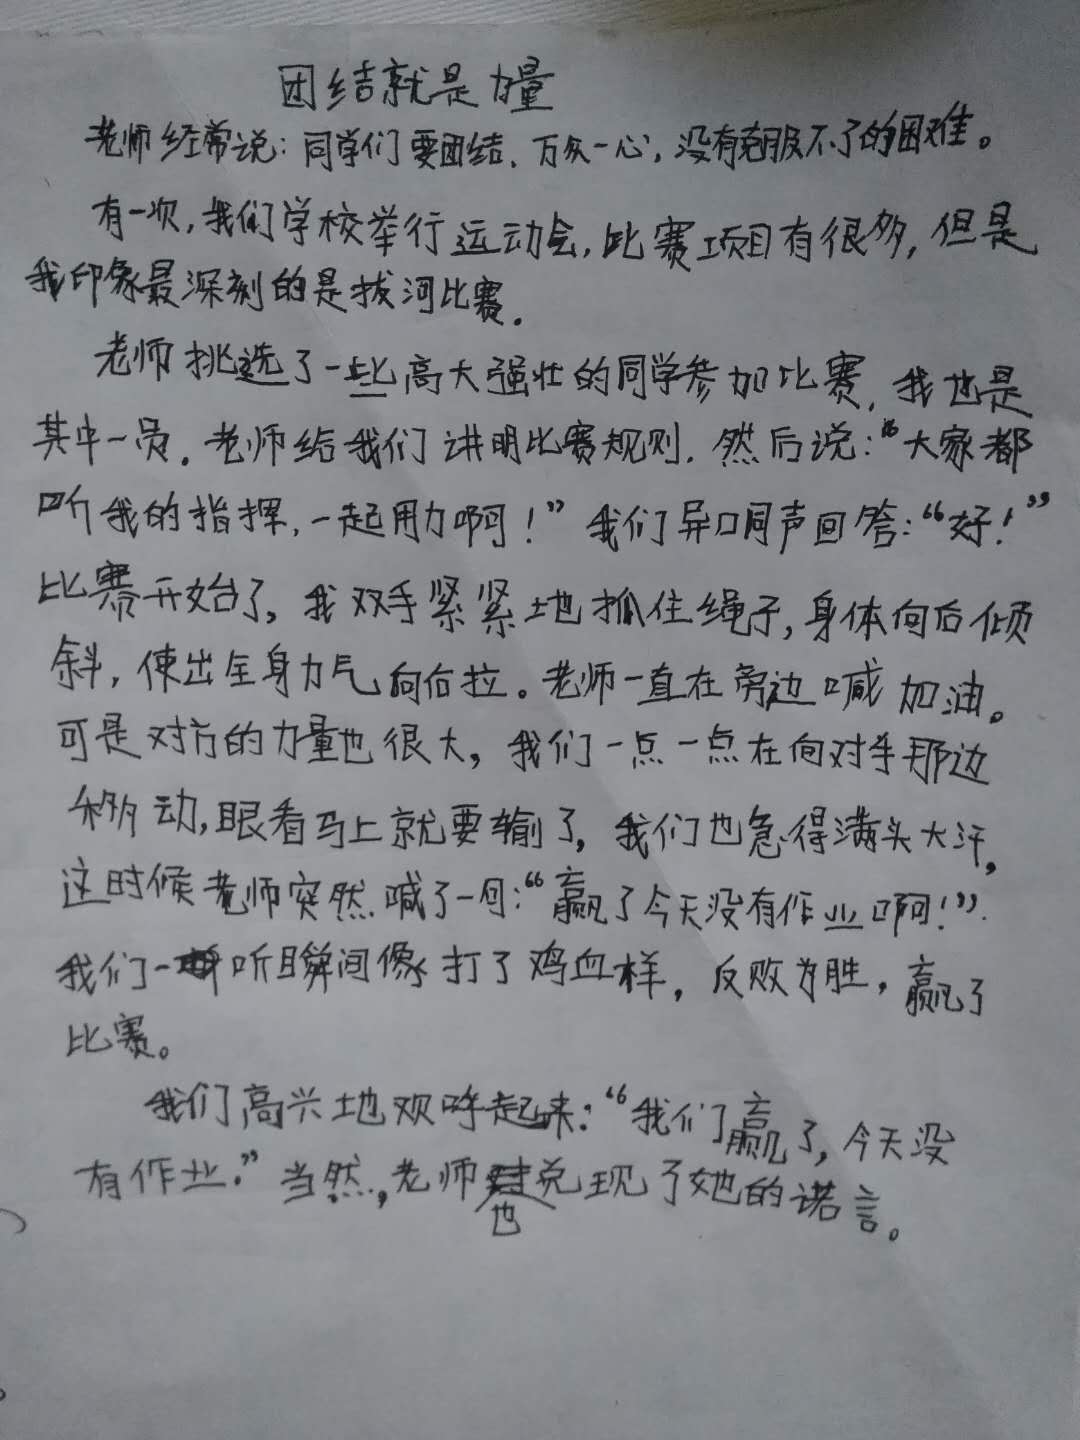 团结就是力量
老师经常说：同学们要团结，万众一心，没有克服不了的困难。
有一次，我们学校举行运动会，比赛项目有很多，但是
我印象最深刻的是拔河比赛。
老师挑选了一些高大强壮的同学参加比赛，我也是
其中一员。老师给我们讲明比赛规则，然后说：“大家都
听我的指挥，一起用力啊！”我们异口同声回答：“好！”
比赛开始了，我双手紧紧地抓住绳子，身体向后倾
斜，使出全身力气向后拉。老师一直在旁边喊加油。
可是对方的力量也很大，我们一点一点在向对手那边
移动，眼看马上就要输了，我们也急得满头大汗，
这时候老师突然喊了一句：“赢了今天没有作业啊！”
我们一听瞬间像打了鸡血样，反败为胜，赢了
比赛。
我们高兴地欢呼起来：“我们赢了，今天没
有作业。”当然，老师也兑现了她的诺言。